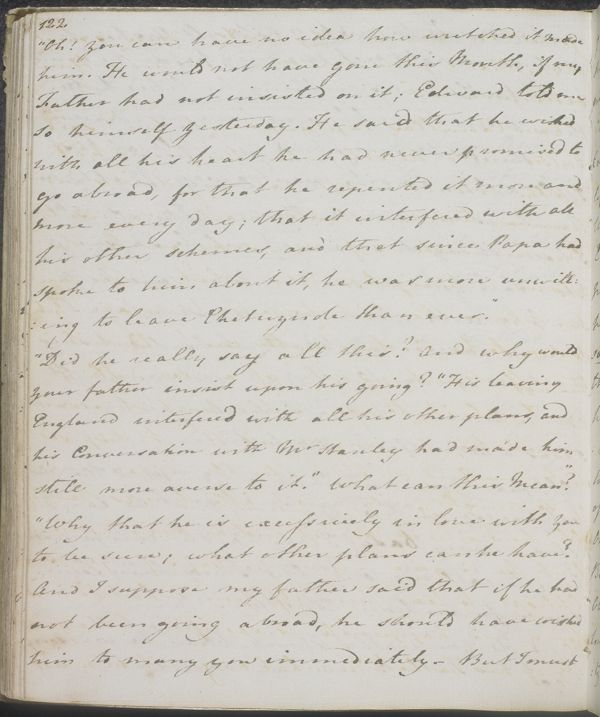 122
"Oh! you can have no idea how wretched it made
him. He would not have gone this Month, if my
Father had not insisted on it; Edward told me
so himself yesterday. He said that he wished
with all his heart he had never promised to
go abroad, for that he repented it more and
more every day; that it interfered with all
his other schemes, and that since Papa had
spoke to him about it, he was more unwill:
:ing to leave Chetwynde than ever."
"Did he really say all this? And why would
your father insist upon his going? "His leaving
England interfered with all his other plans, and
his Conversation with Mr Stanley had made him
still more averse to it." What can this Mean?"
"Why that he is excessively in love with you
to be sure; what other plans can he have?
And I suppose my father said that if he had
not been going abroad, he should have wished
him to marry you immediately. – But I must